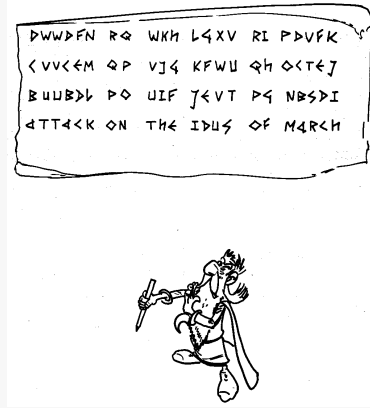 DWWDFN RQ WKH LGXV RI PDVFK
CVVCEM QP VJG KFWU QH OCTEJ
BUUBDL PO UIF JEVT PG NBSDI
ATTACK ON THE IDUS OF MARCH